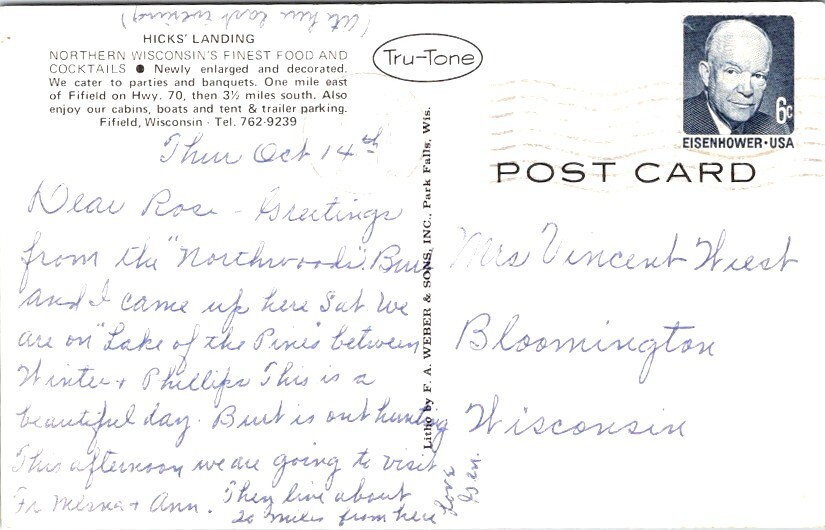 (Ate here last evening)
HICKS' LANDING
NORTHERN WISCONSIN'S FINEST FOOD AND
COCKTAILS ● Newly enlarged and decorated.
We cater to parties and banquets. One mile east
of Fifield on Hwy. 70, then 3½ miles south. Also
enjoy our cabins, boats and tent & trailer parking.
Fifield, Wisconsin - Tel. 762-9239
Tru-Tone
6c
EISENHOWER • USA
POST CARD
Thur Oct 14th
Dear Rose - Greetings
from the "Northwoods". Burt
and I came up here Sat We
are on "Lake of the Pines" between
Winter + Phillips This is a
beautiful day. Burt is out hunting
This afternoon we are going to visit
Fr + Ann. They live about
20 miles from here
Love
Gen.
Litho by F. A. WEBER & SONS, INC., Park Falls, Wis.
Mrs Vincent Wiest
Bloomington
Wisconsin